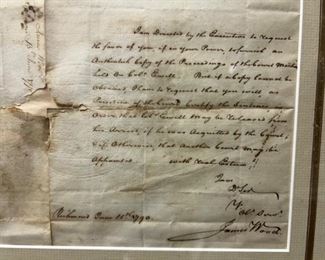 I am Directed by the Executive to request
the favor of you if in your Power to furnish an
Authentick Copy of the Proceedings of the Court Martial
held on Colo. Ewell. But if a Copy Cannot be
Obtained, I have to request that you will, as
President of the Court Certify the Sentence, in
Order that Colo. Ewell May be Released from
his Arrest, if he was Acquitted by the Court,
if Otherwise that Another Court may be
Appointed. with real Esteem
I am
Dr Sir
Yr Ob Serv
James Wood
Richmond June 1790